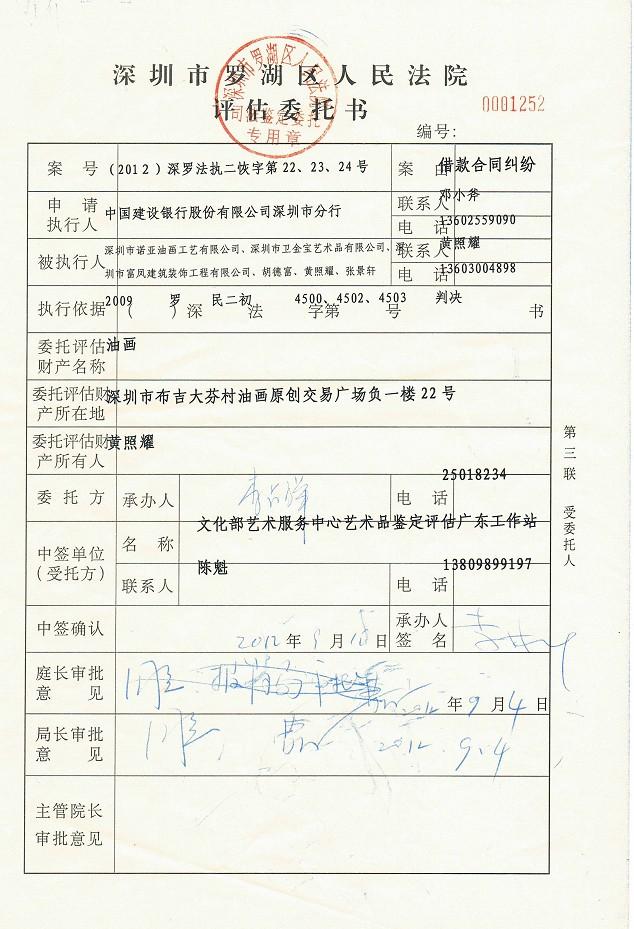 深圳市罗湖区人民法院
评估委托书
深圳市罗湖区人民法院
司法鉴定委托
专用章
0001252
编号:
案 号 (2012)深罗法执二恢字第22、23、24号 案 由 借款合同纠纷
申 请 执行人 中国建设银行股份有限公司深圳市分行 联系人 邓小斧
电 话 13602559090
被执行人 深圳市诺亚油画工艺有限公司、深圳市卫金宝艺术品有限公司、深 联系人 黄照耀
圳市富凤建筑装饰工程有限公司、胡德富、黄照耀、张景轩 电 话 13603004898
2009 罗 民二初 4500、4502、4503 判决
执行依据 ( )深 法 字第 号 书
委托评估 财产名称 油画
委托评估财 产所在地 深圳市布吉大芬村油画原创交易广场负一楼22号
委托评估财 产所有人 黄照耀
委 托 方 承办人 电 话 25018234
中签单位 (受托方) 名 称 文化部艺术服务中心艺术品鉴定评估广东工作站
联系人 陈魁 电 话 13809899197
中签确认 2012年9月 日 承办人 签 名
庭长审批 意 见 年9月4日
局长审批 意 见 2012.9.4
主管院长 审批意见
第三联 受委托人